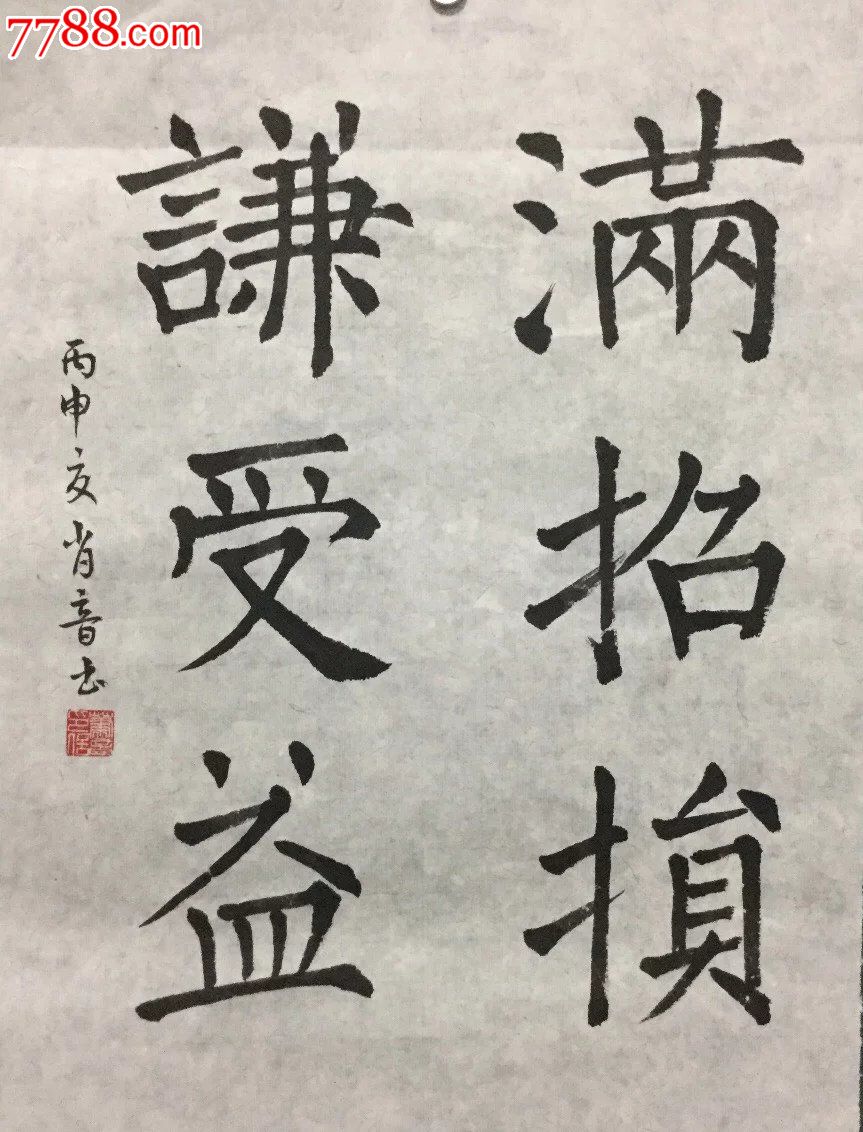 7788.com
滿招損
謙受益
丙申友肖音书